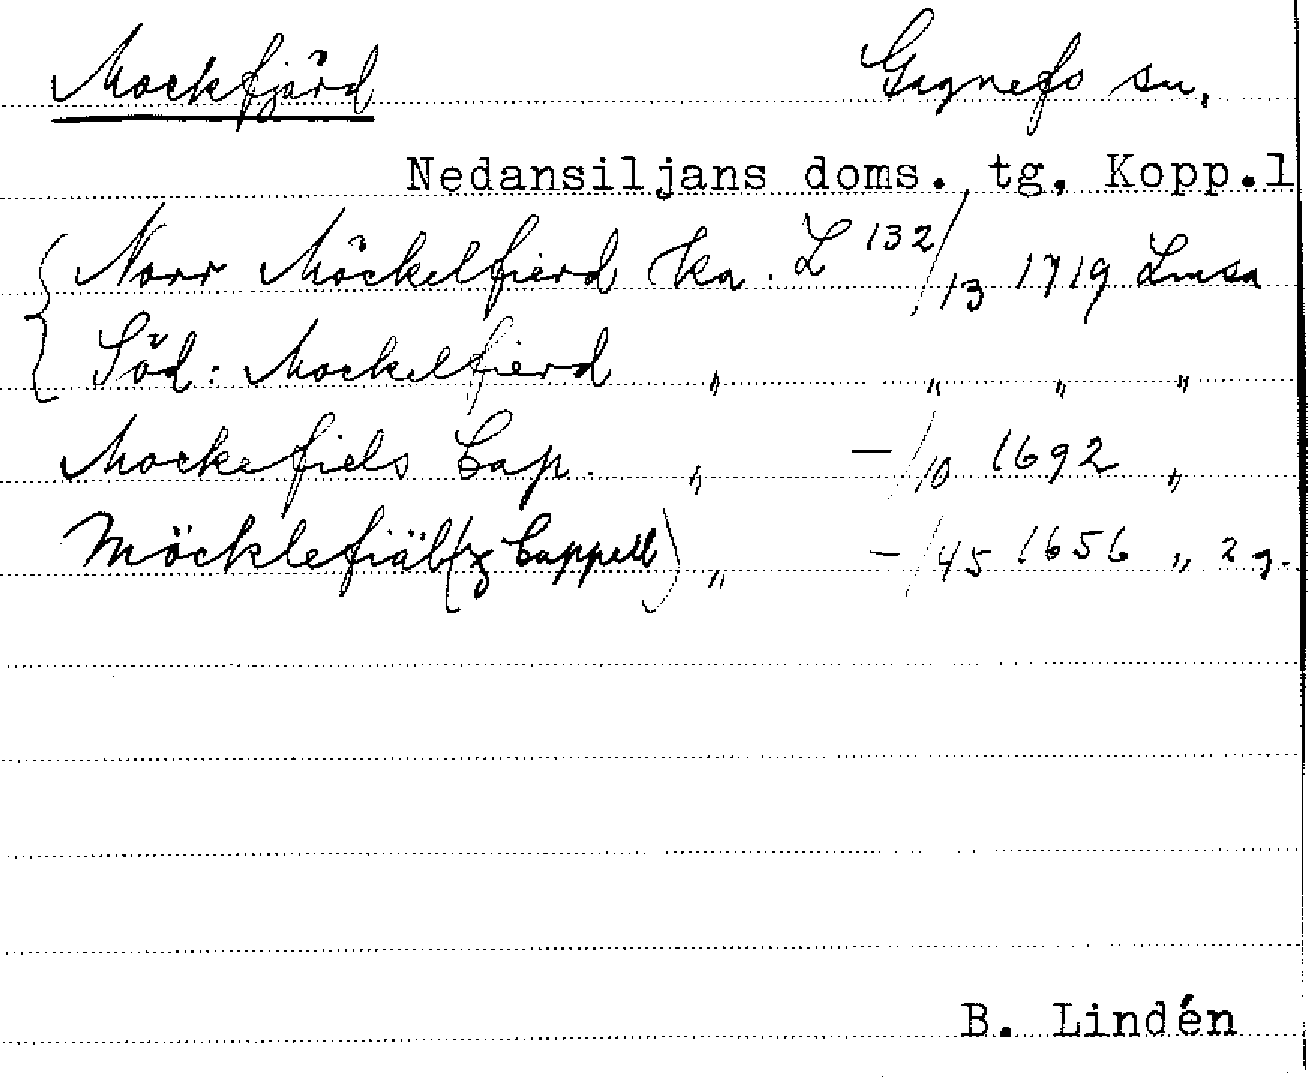 Mockfjärd Gagnefs sn.
Nedansiljans doms. tg. Kopp.l
Norr Möckelfierd ka. L 132/13 1719 Lmsa
Söd: Mockelfierd " " " "
Mockefiels Cap. " -/10 1692 "
Möcklefiäl (z Cappell) " -/45 1656 " 2 g.
B. Lindén